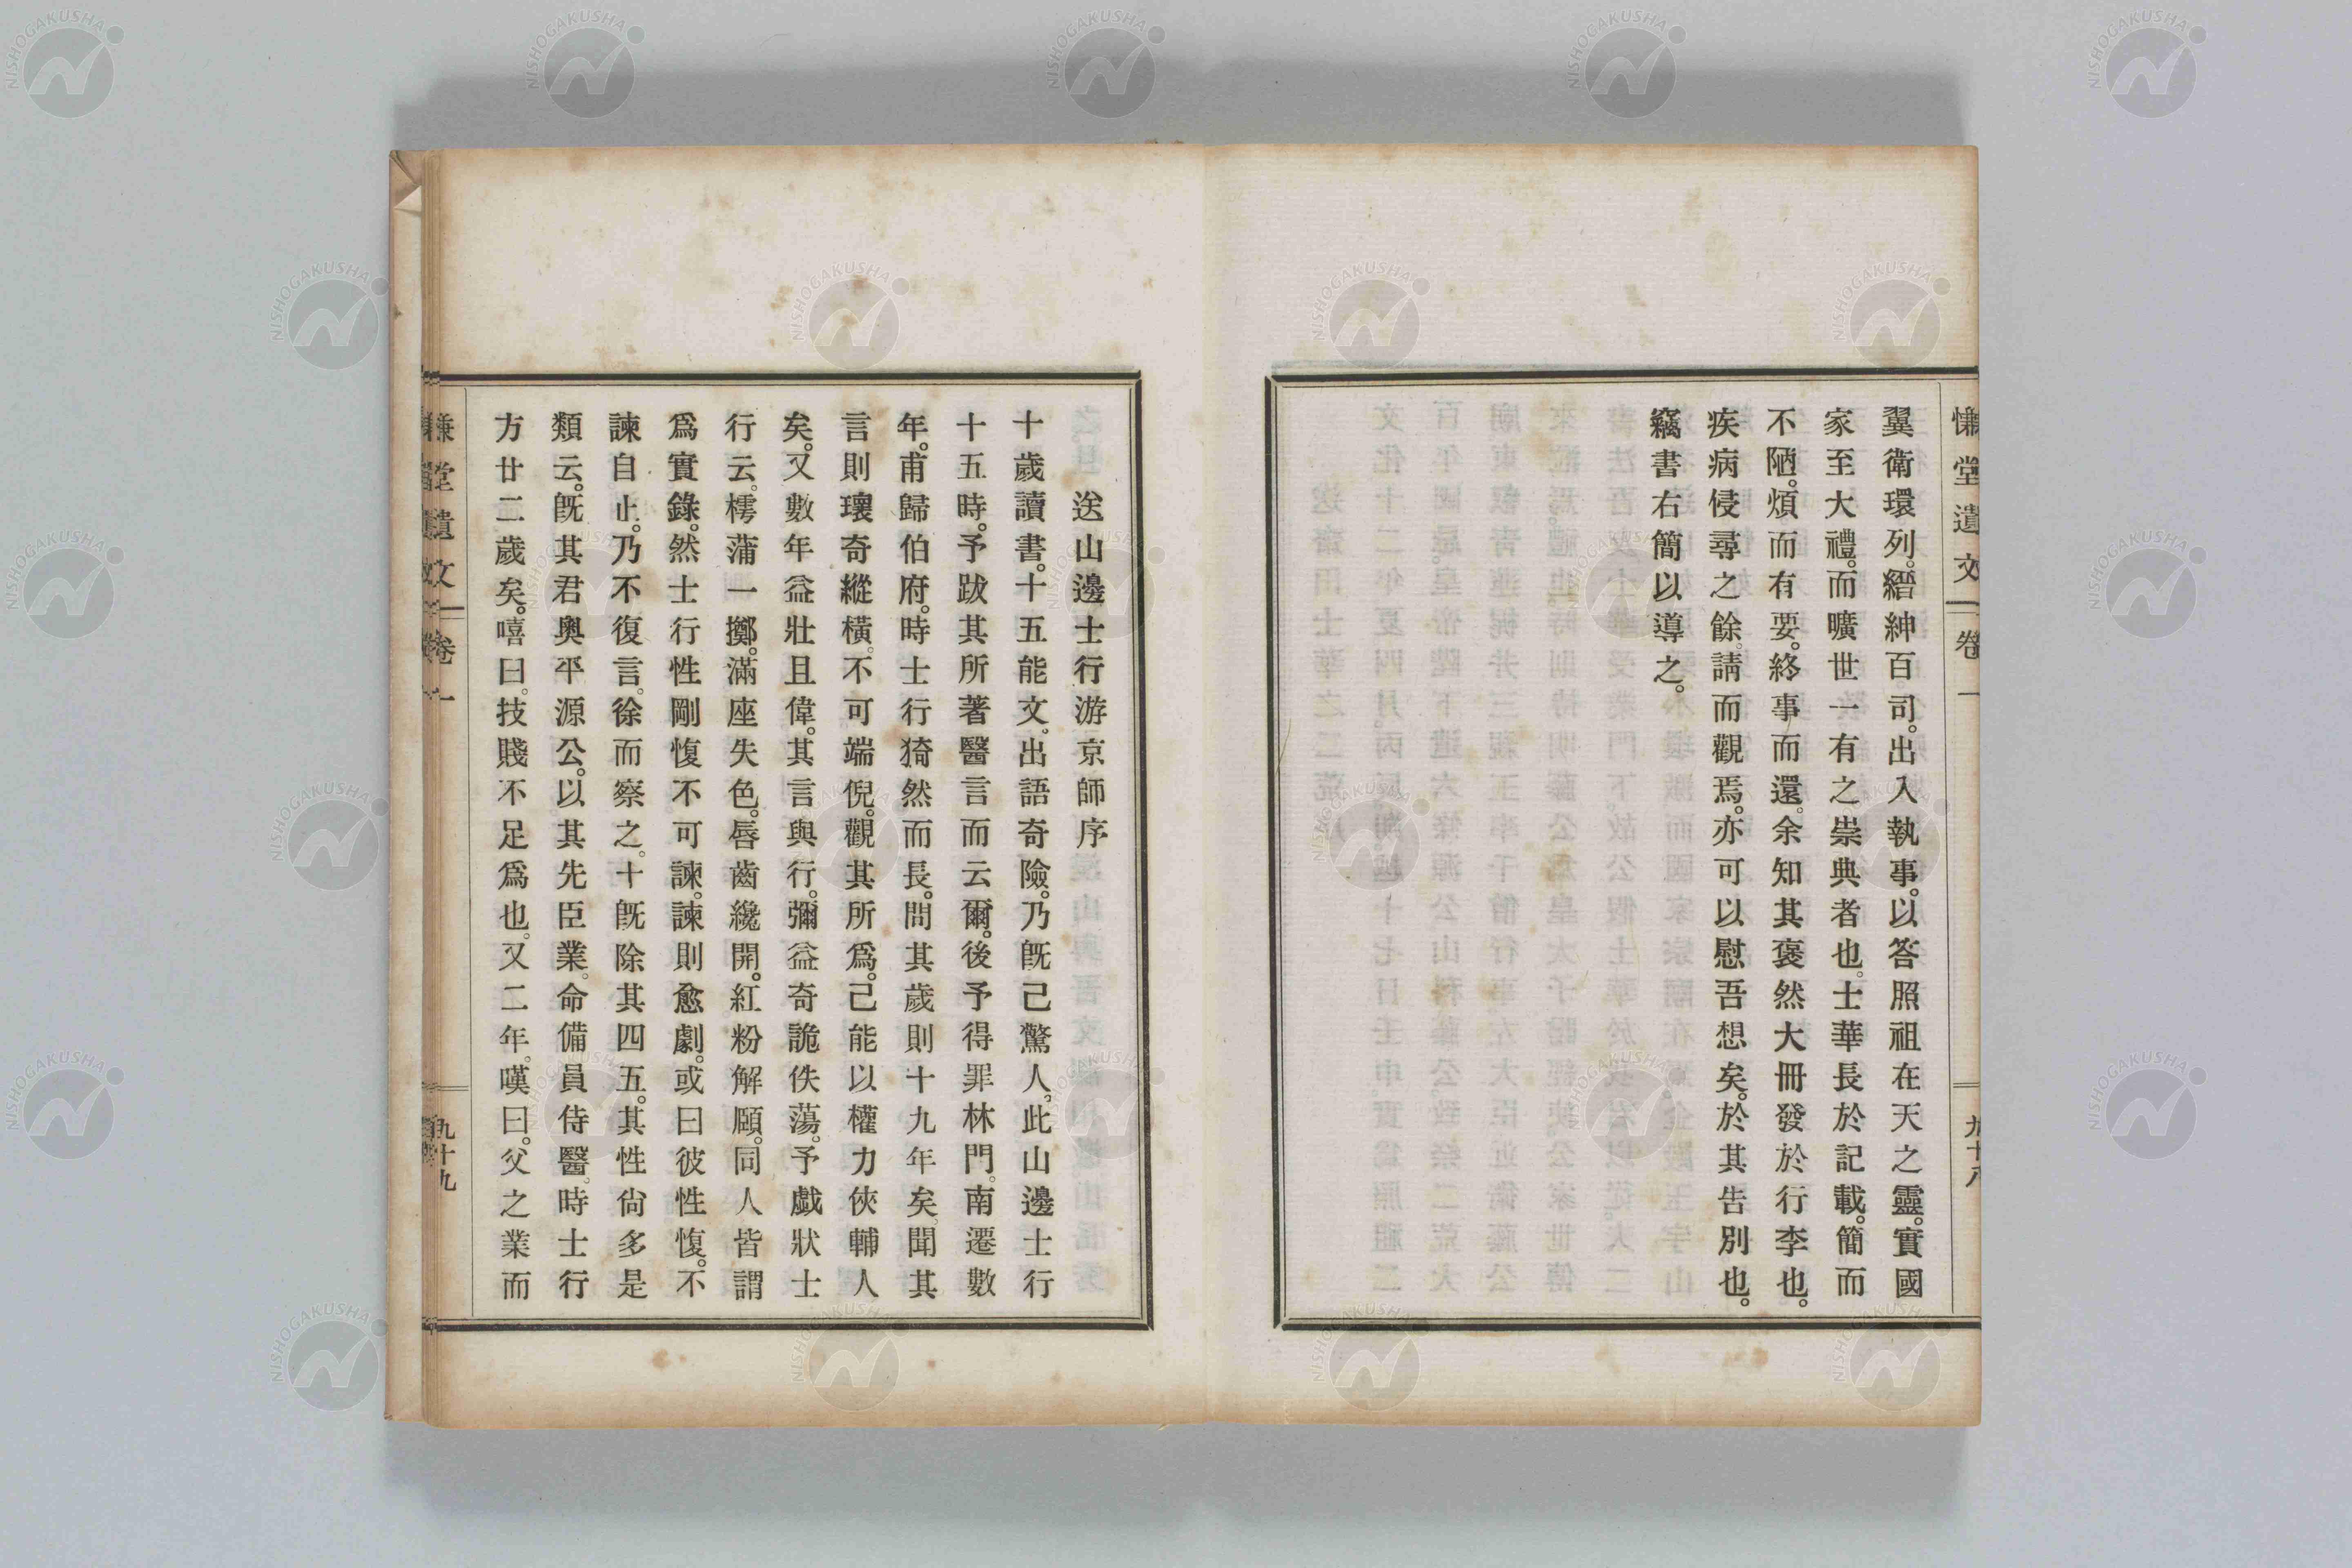 慊堂遺文 卷一 九十八
翼衛環列。縉紳百司。出入執事。以答照祖在天之靈。實國
家至大禮。而曠世一有之崇典者也。士華長於記載。簡而
不陋。煩而有要。終事而還。余知其裒然大冊發於行李也。
疾病侵尋之餘。請而觀焉。亦可以慰吾想矣。於其告別也。
竊書右簡以導之。
送山邊士行游京師序
十歲讀書。十五能文。出語奇險。乃既已驚人。此山邊士行
十五時。予跋其所著醫言而云爾。後予得罪林門。南遷數
年。甫歸伯府。時士行猗然而長。問其歲則十九年矣。聞其
言則瓌奇縱橫。不可端倪。觀其所爲。已能以權力俠輔人
矣。又數年益壯且偉。其言與行。彌益奇詭佚蕩。予戯狀士
行云。樗蒲一擲。滿座失色。唇齒纔開。紅粉解願。同人皆謂
爲實錄。然士行性剛愎不可諫。諫則愈劇。或曰彼性愎。不
諫自止。乃不復言。徐而察之。十既除其四五。其性尙多是
類云。既其君奧平源公。以其先臣業。命備員侍醫。時士行
方廿二歲矣。嘻曰。技賤不足爲也。又二年。嘆曰。父之業而
慊堂遺文 卷一 九十九
NISHOGAKUSHA